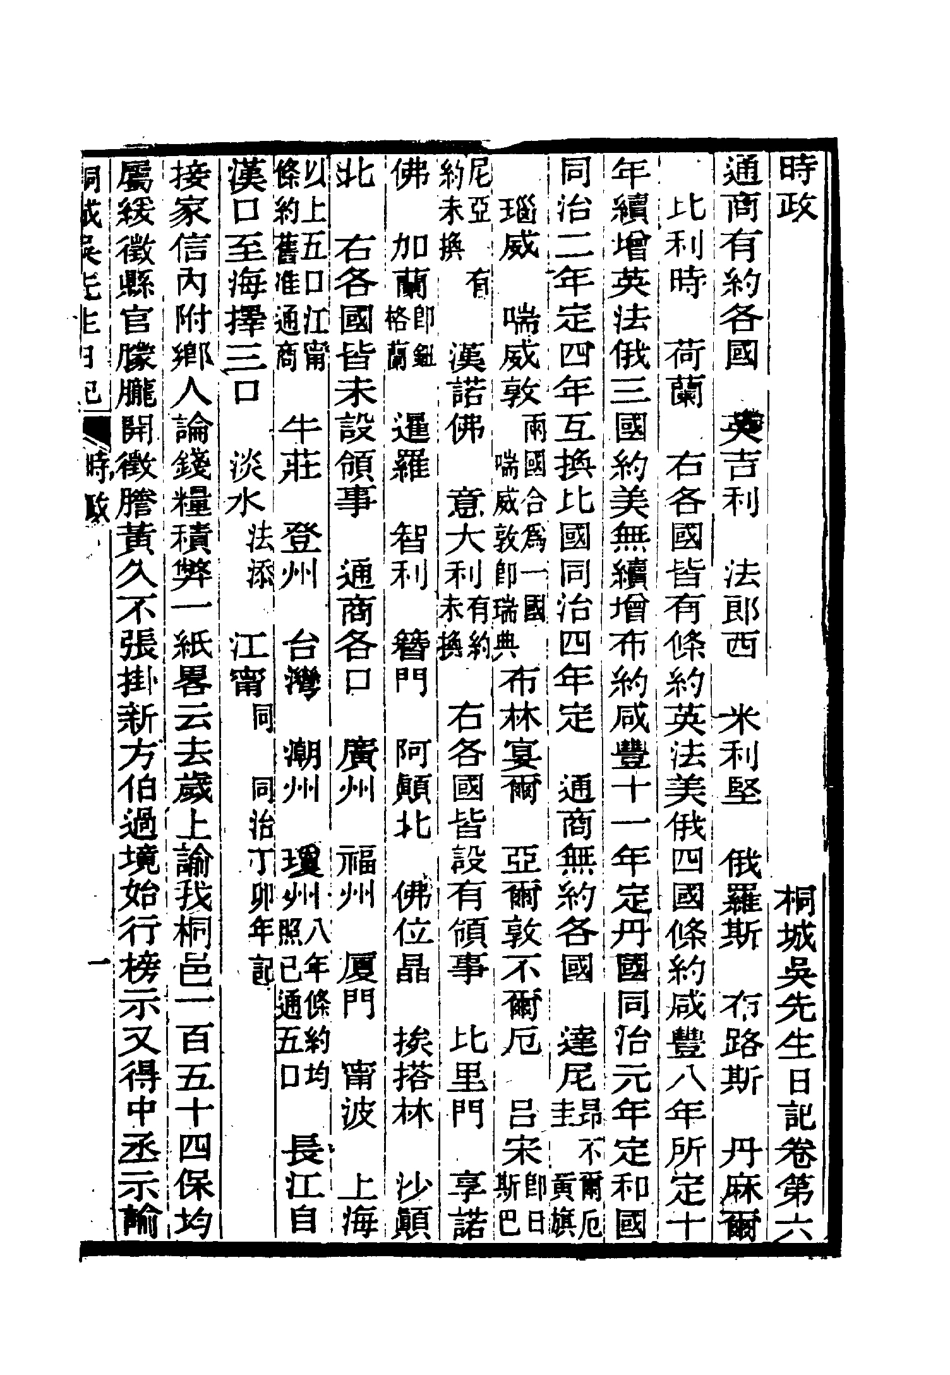 時政　桐城吳先生日記卷第六
通商有約各國　英吉利　法郎西　米利堅　俄羅斯　布路斯　丹麻爾
比利時　荷蘭　右各國皆有條約英法美俄四國條約咸豐八年所定十
年續增英法俄三國約美無續增布約咸豐十一年定丹國同治元年定和國
同治二年定四年互換比國同治四年定　通商無約各國　達尼昂不爾厄圭黃旗
瑙威　喘威敦兩國合爲一國喘威敦卽瑞典　布林宴爾　亞爾敦不爾厄　呂宋卽日斯巴
尼亞有約未換　漢諾佛　意大利有約未換　右各國皆設有領事　比里門　享諾
佛　加蘭卽鈕格蘭　暹羅　智利　簪門　阿顛北　佛位晶　挨搭林　沙顛
北　右各國皆未設領事　通商各口　廣州　福州　厦門　甯波　上海
以上五口江甯條約舊准通商　牛莊　登州　台灣　潮州　瓊州八年條約均照已通五口　長江自
漢口至海擇三口　淡水法添　江甯同　同治丁卯年記
接家信內附鄉人論錢糧積弊一紙畧云去歲上諭我桐邑一百五十四保均
屬緩徵縣官朦朧開徵謄黃久不張掛新方伯過境始行榜示又得中丞示諭
桐城吳先生日記　時政　一